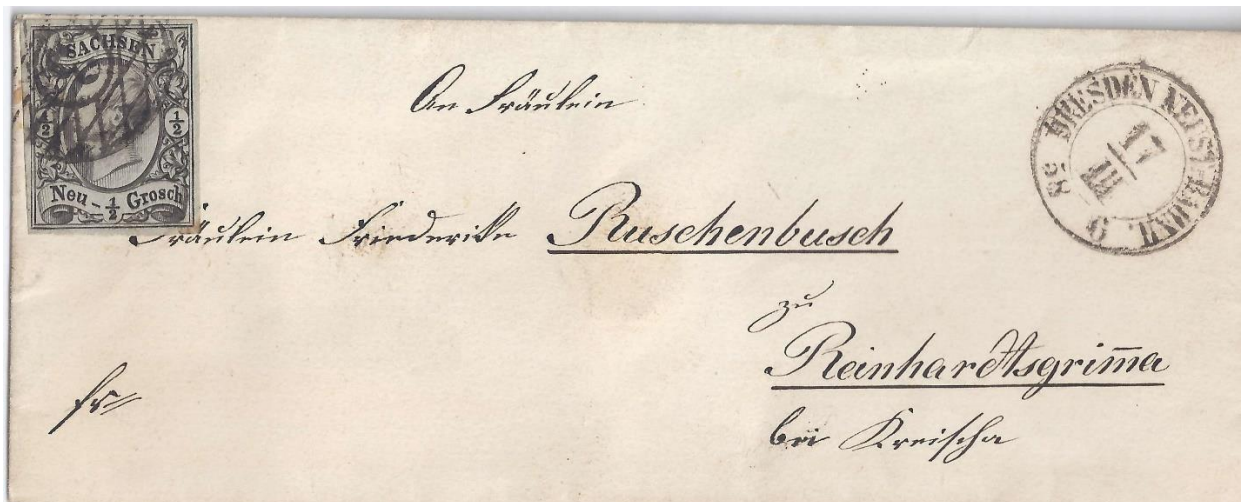 SACHSEN
½ ½
Neu - ½ Grosch
An Fräulein
DRESDEN NEUST-BAHNH.
17
III
58
Fräulein Friederike Ruschenbusch
zu
Reinhardtsgrim̄a
bei Kreischa
fr